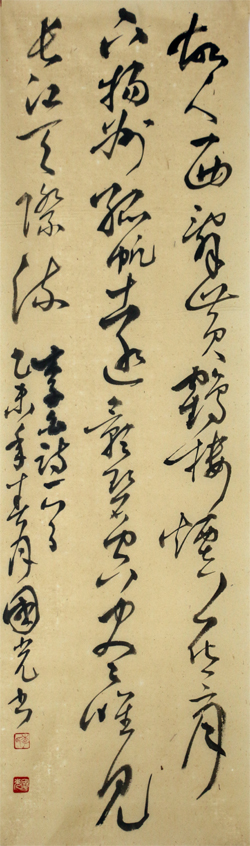 故人西辭黃鶴樓煙花三月
下揚州孤帆遠影碧空盡唯見
長江天際流
李白詩一首
乙未年春月國光書